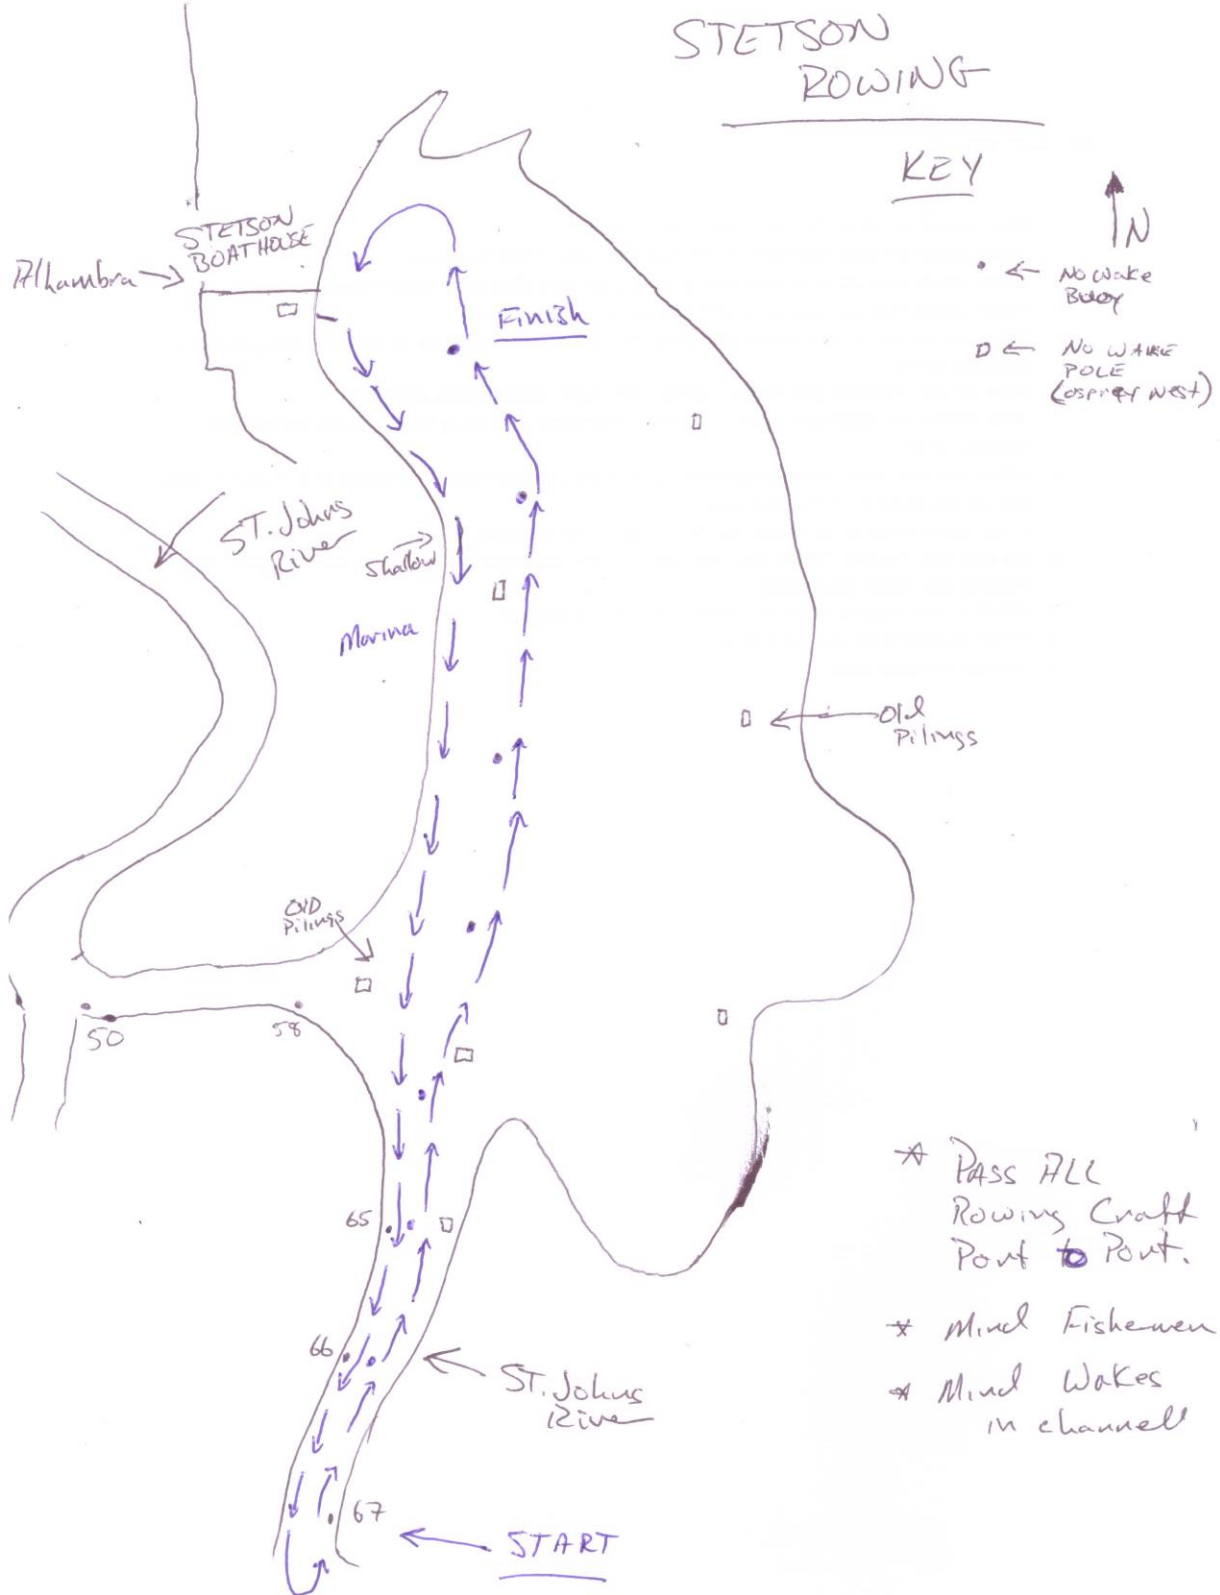 STETSON
ROWING
KEY
N
No Wake
Buoy
No WAKE
POLE
(osprey nest)
STETSON
BOATHOUSE
Alhambra
Finish
ST. Johns
River
Shallow
Marina
Old
Pilings
OlD
Pilings
50
58
65
66
67
ST. Johns
River
START
* PASS ALL
Rowing Craft
Port to Port.
* Mind Fishermen
* Mind Wakes
in channell